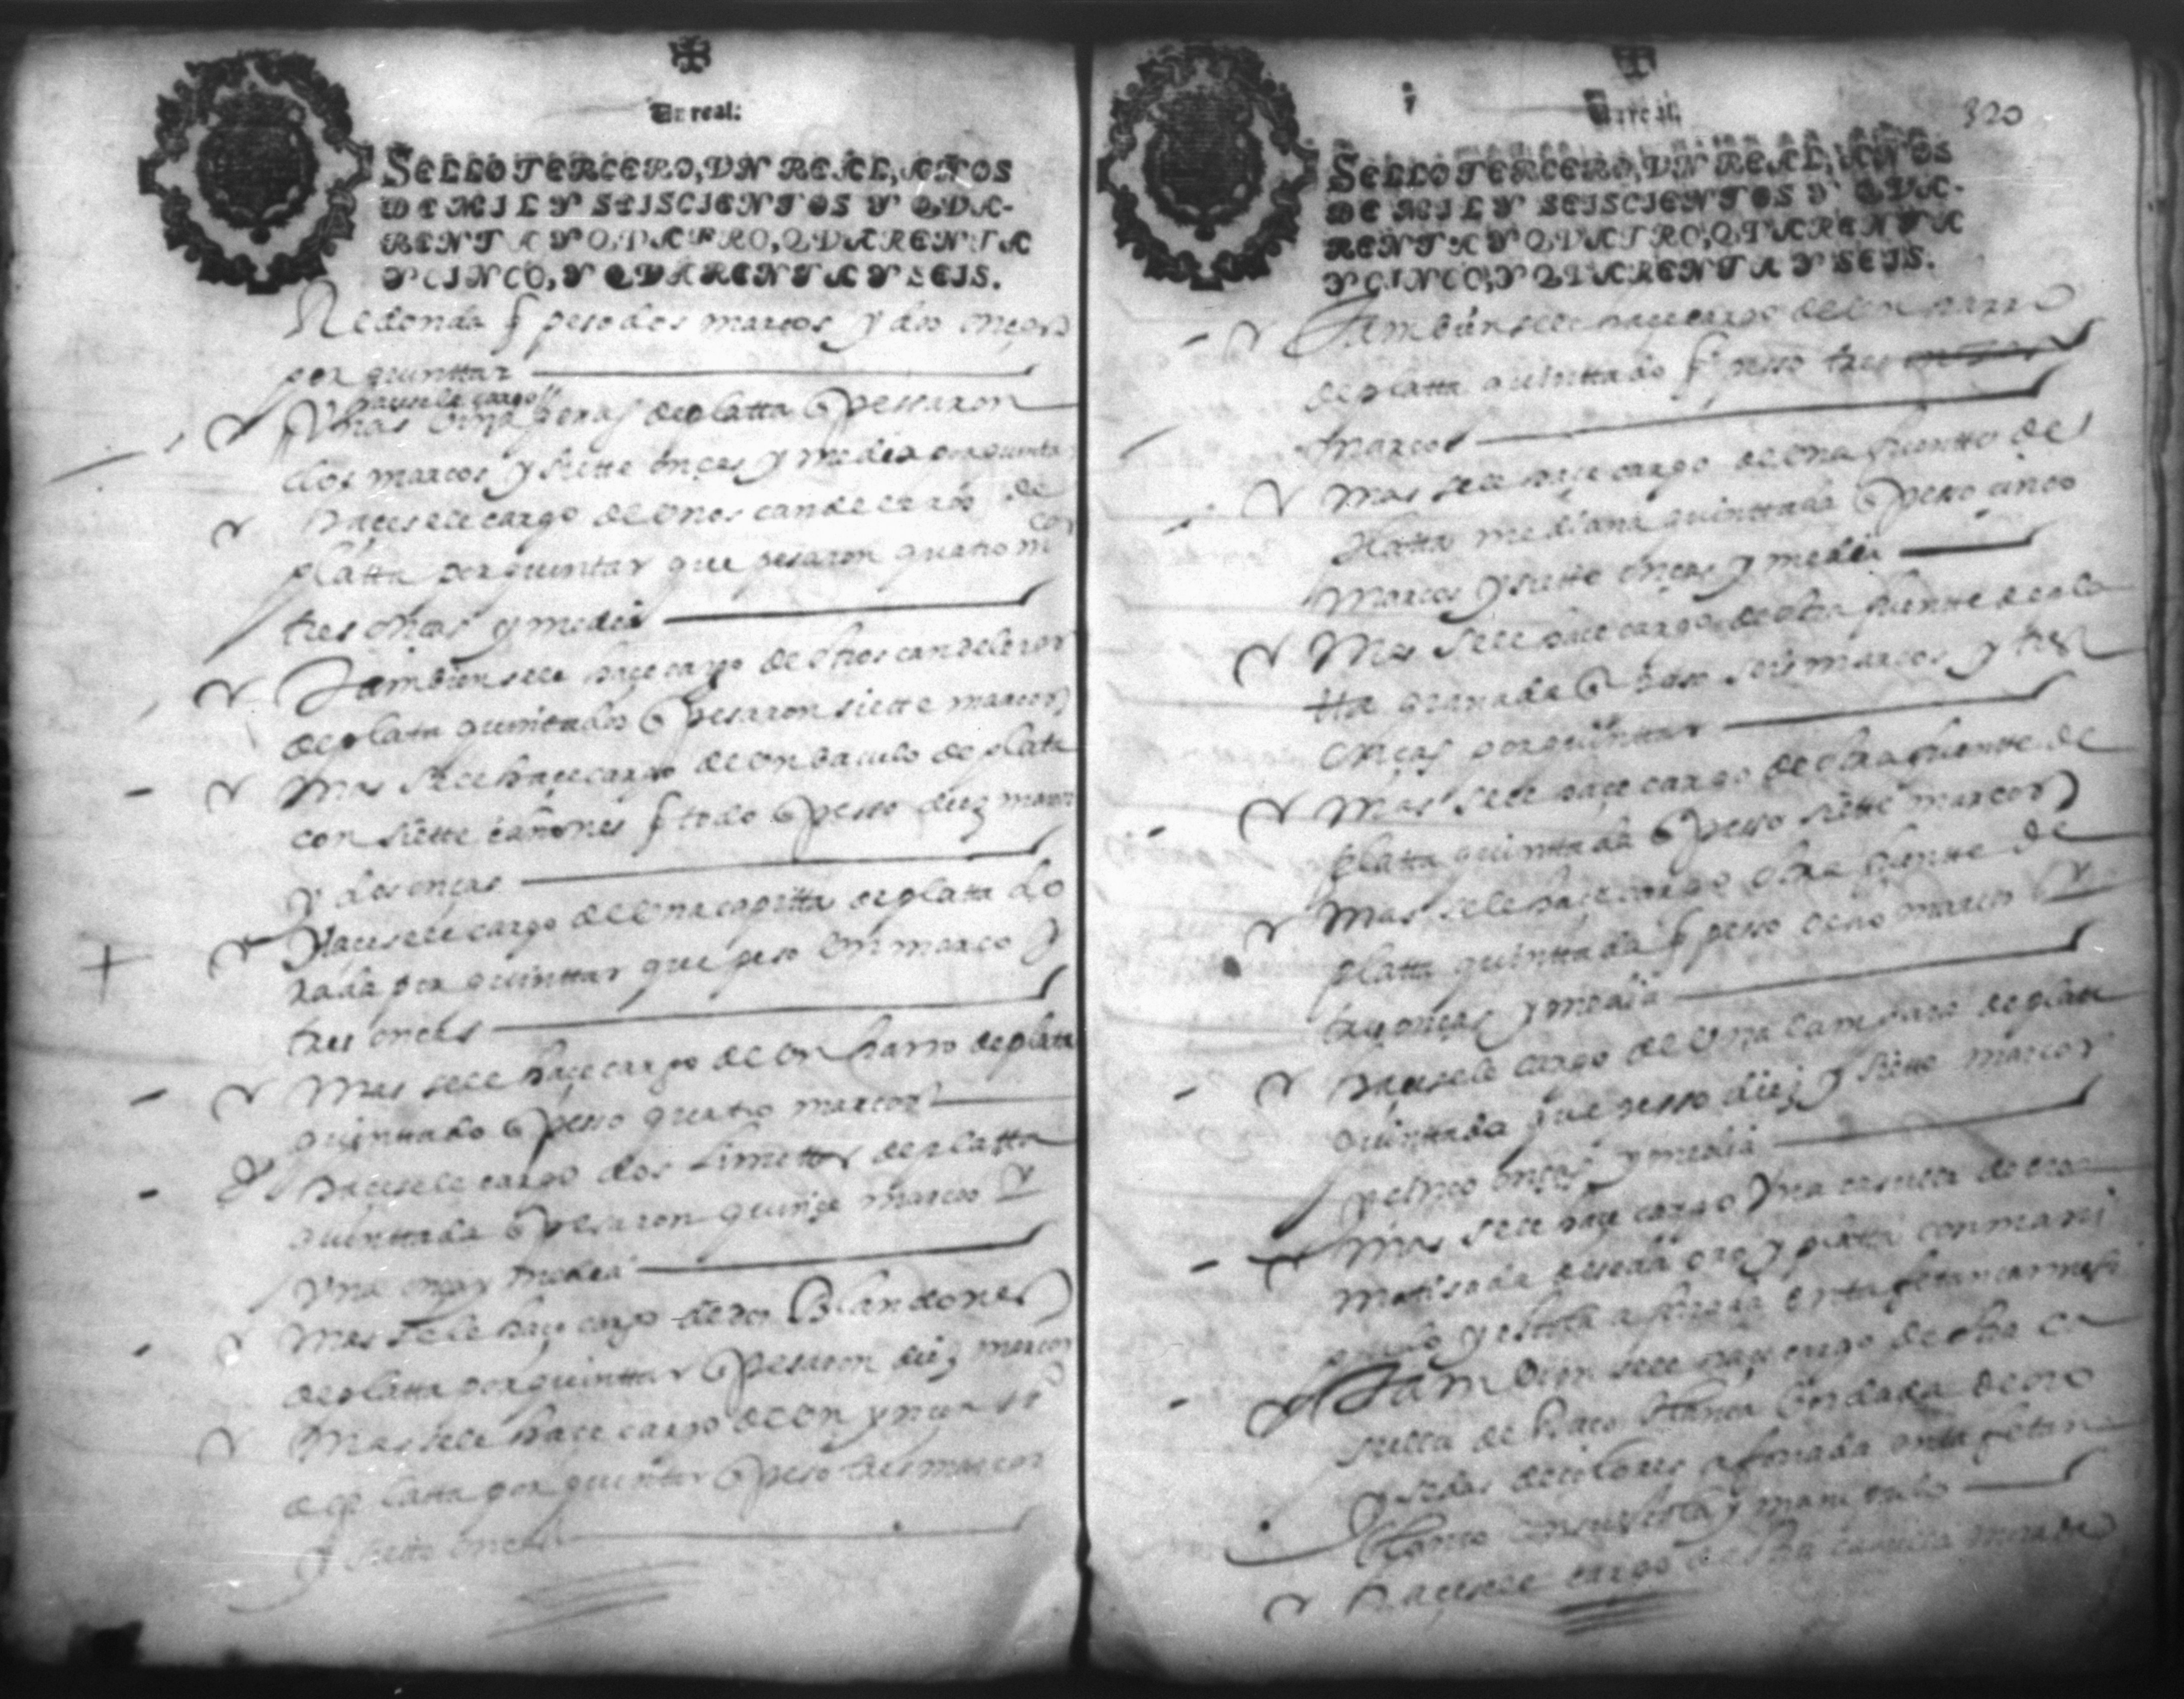 Un real.
SELLO TERCERO, VN REAL, AÑOS
DE MIL Y SEISCIENTOS Y QVA-
RENTA Y QVATRO, QVARENTA
Y CINCO, Y QVARENTA Y SEIS.
Redonda q peso dos marcos y dos onças
por quinttar
haçesele cargo
Unas de platta q pessaron
dos marcos y siette onças y media por quintar
haçesele cargo de unos candeleros de
platta por quintar que pesaron quatro m
tres onças y media
Tambien se le haçe cargo de otros candeleros
de plata quintados q pesaron siette marcos
Mas se le haçe cargo de un baculo de plata
con siette cañones q todo q pesso diez marcos
y dos onças
Haçesele cargo de una copitta de platta do
rada por quinttar que peso un marco y
tres onças
Mas se le haçe cargo de un harro de plata
quinttado q pesso quatro marcos
haçesele cargo dos limettas de platta
quinttada q pesaron quinze marcos y
Una onça y media
Mas se le haçe cargo de dos Blandones
de platta por quinttar q pesaron diez marcos
Mas se le haçe cargo de un
de platta por quintar q peso dos marcos
y siette onças
320
Un real.
SELLO TERCERO, VN REAL, AÑOS
DE MIL Y SEISCIENTOS Y QVA-
RENTA Y QVATRO, QVARENTA
Y CINCO, Y QVARENTA Y SEIS.
Tambien se le haçe cargo de un harro
de platta quinttado q pesso tres
marcos
Mas se le haçe cargo de una fuentte de
Platta mediana quinttada q pesso cinco
marcos y siette onças y media
Mas se le haçe cargo de otra fuentte de pla
tta q peso seis marcos y tres
onças por quinttar
Mas se le haçe cargo de otra fuentte de
platta quinttada q pesso siette marcos
Mas se le haçe cargo otra fuentte de
platta quinttada q pesso ocho marcos y
tres onças y media
haçesele cargo de una lampara de platta
quinttada que pesso diez y siette marcos
y cinco onças y media
Mas se le haçe cargo Una casulla de
matisada de seda oro y platta con mani
pulo y estola aforada en tafetan carmesi
Tambien se le haçe cargo de otra ca
sulla de blanca bordada de oro
y sedas de colores aforada en tafetan
blanco con su estola y manipulo
haçesele cargo de otra casulla morada